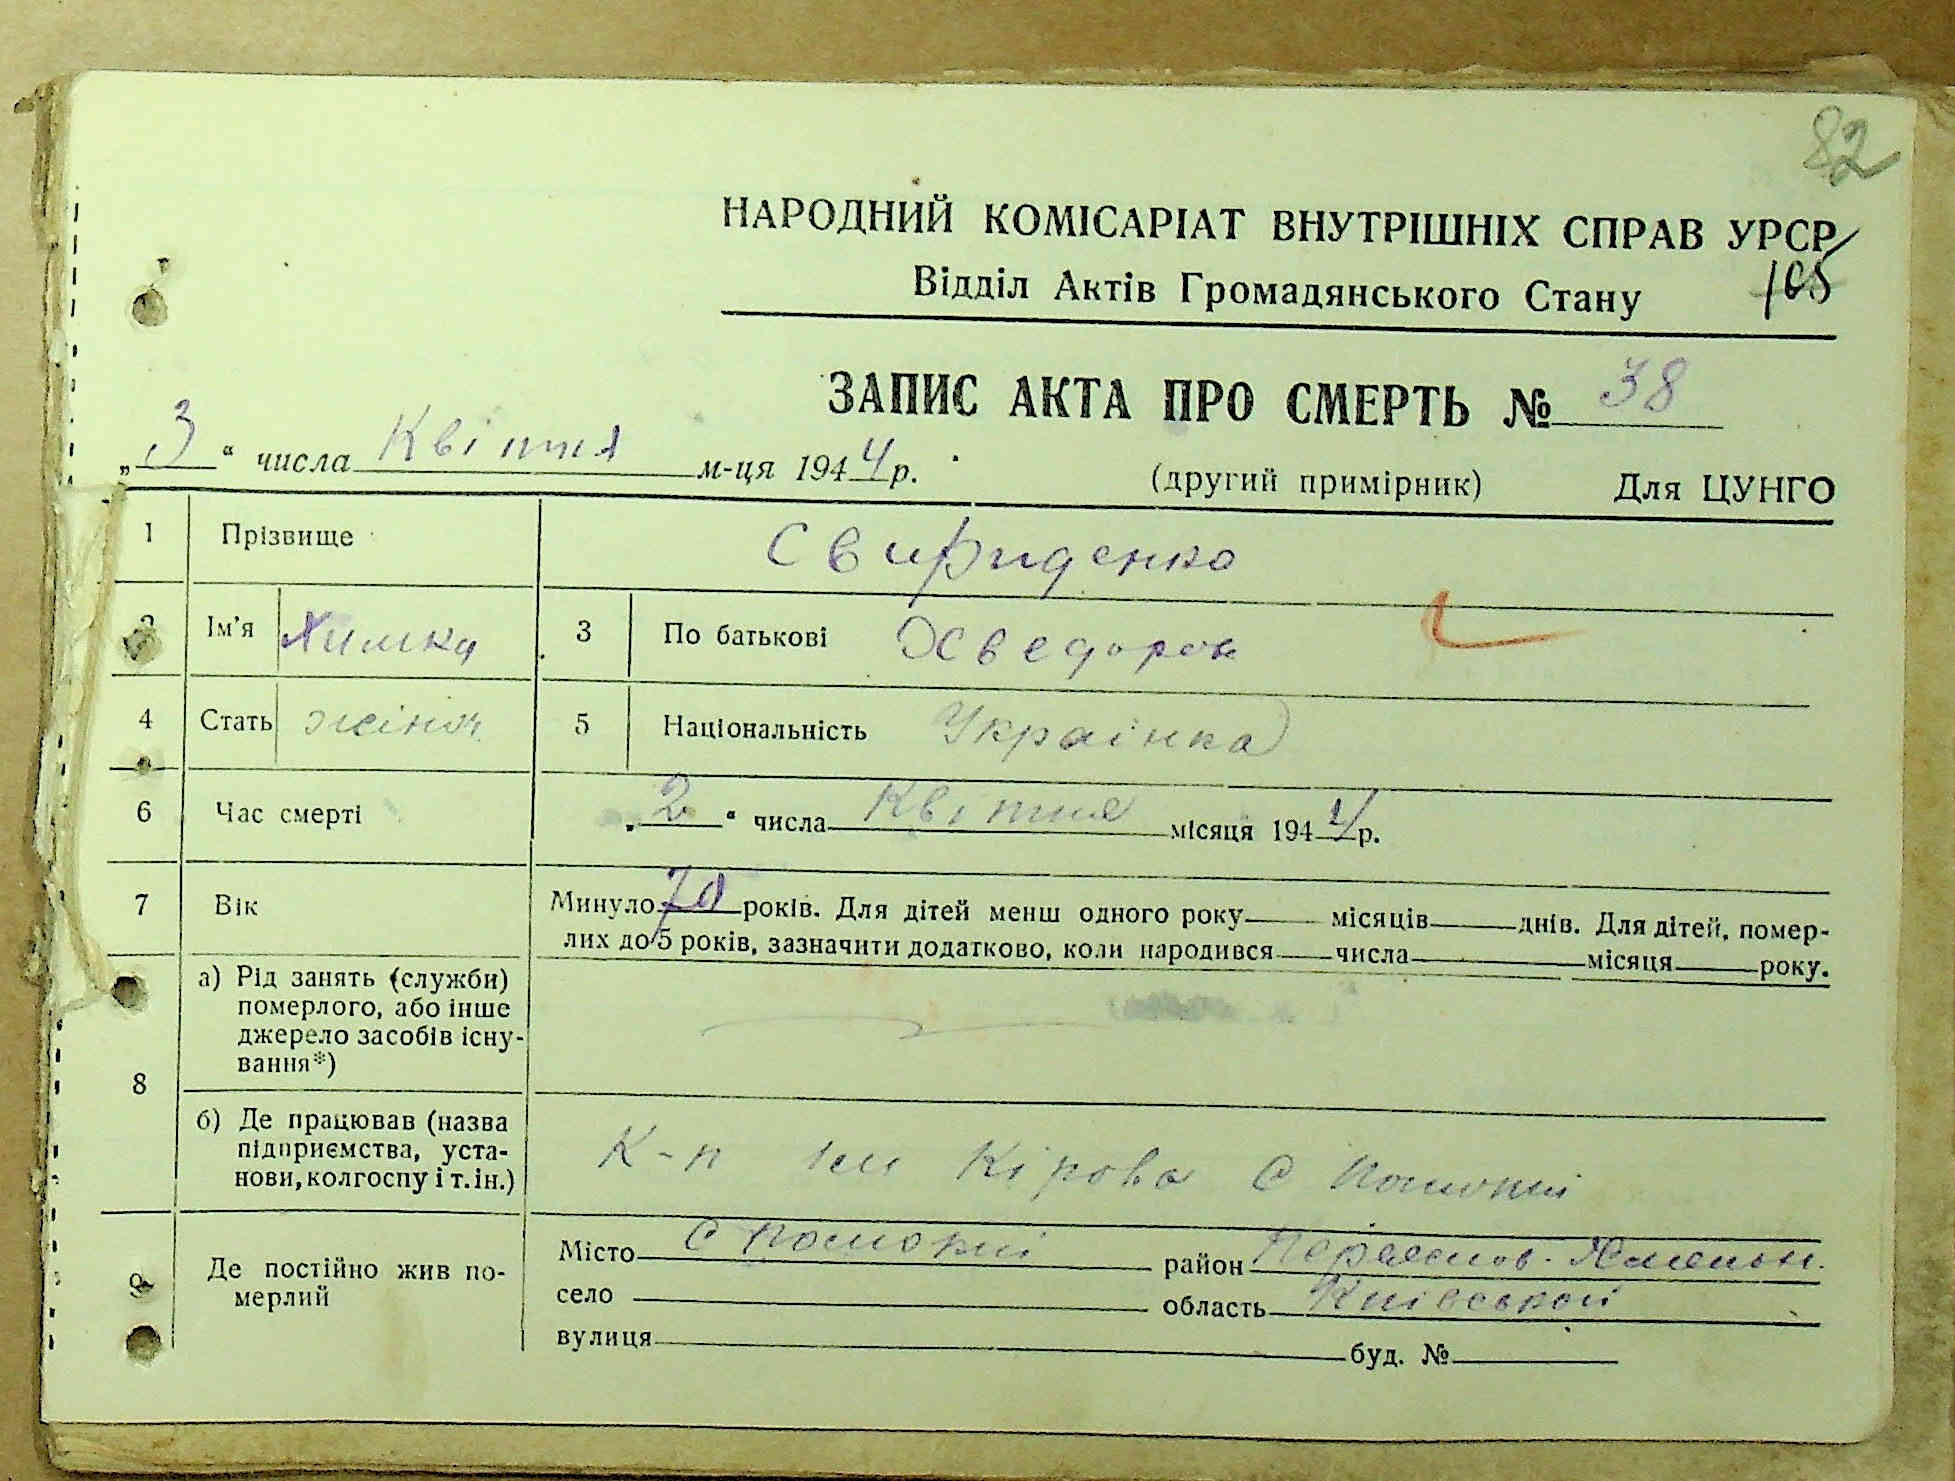 82
НАРОДНИЙ КОМІСАРІАТ ВНУТРІШНІХ СПРАВ УРСР
Відділ Актів Громадянського Стану 105
ЗАПИС АКТА ПРО СМЕРТЬ № 38
„3“ числа Квітня м-ця 1944 р. (другий примірник) Для ЦУНГО
1 Прізвище Свириденко
2 Ім'я Химка 3 По батькові Хведоров
4 Стать жіноч 5 Національність Українка
6 Час смерті „2“ числа Квітня місяця 1944 р.
7 Вік Минуло 70 років. Для дітей менш одного року місяців днів. Для дітей, помер-
лих до 5 років, зазначити додатково, коли народився числа місяця року.
8 а) Рід занять (служби)
померлого, або інше
джерело засобів існу-
вання*)
б) Де працював (назва
підприємства, уста-
нови, колгоспу і т. ін.)
К-п ім Кірова С
9 Де постійно жив по-
мерлий
Місто С район Переяслов-Хмельн.
село область Київської
вулиця буд. №